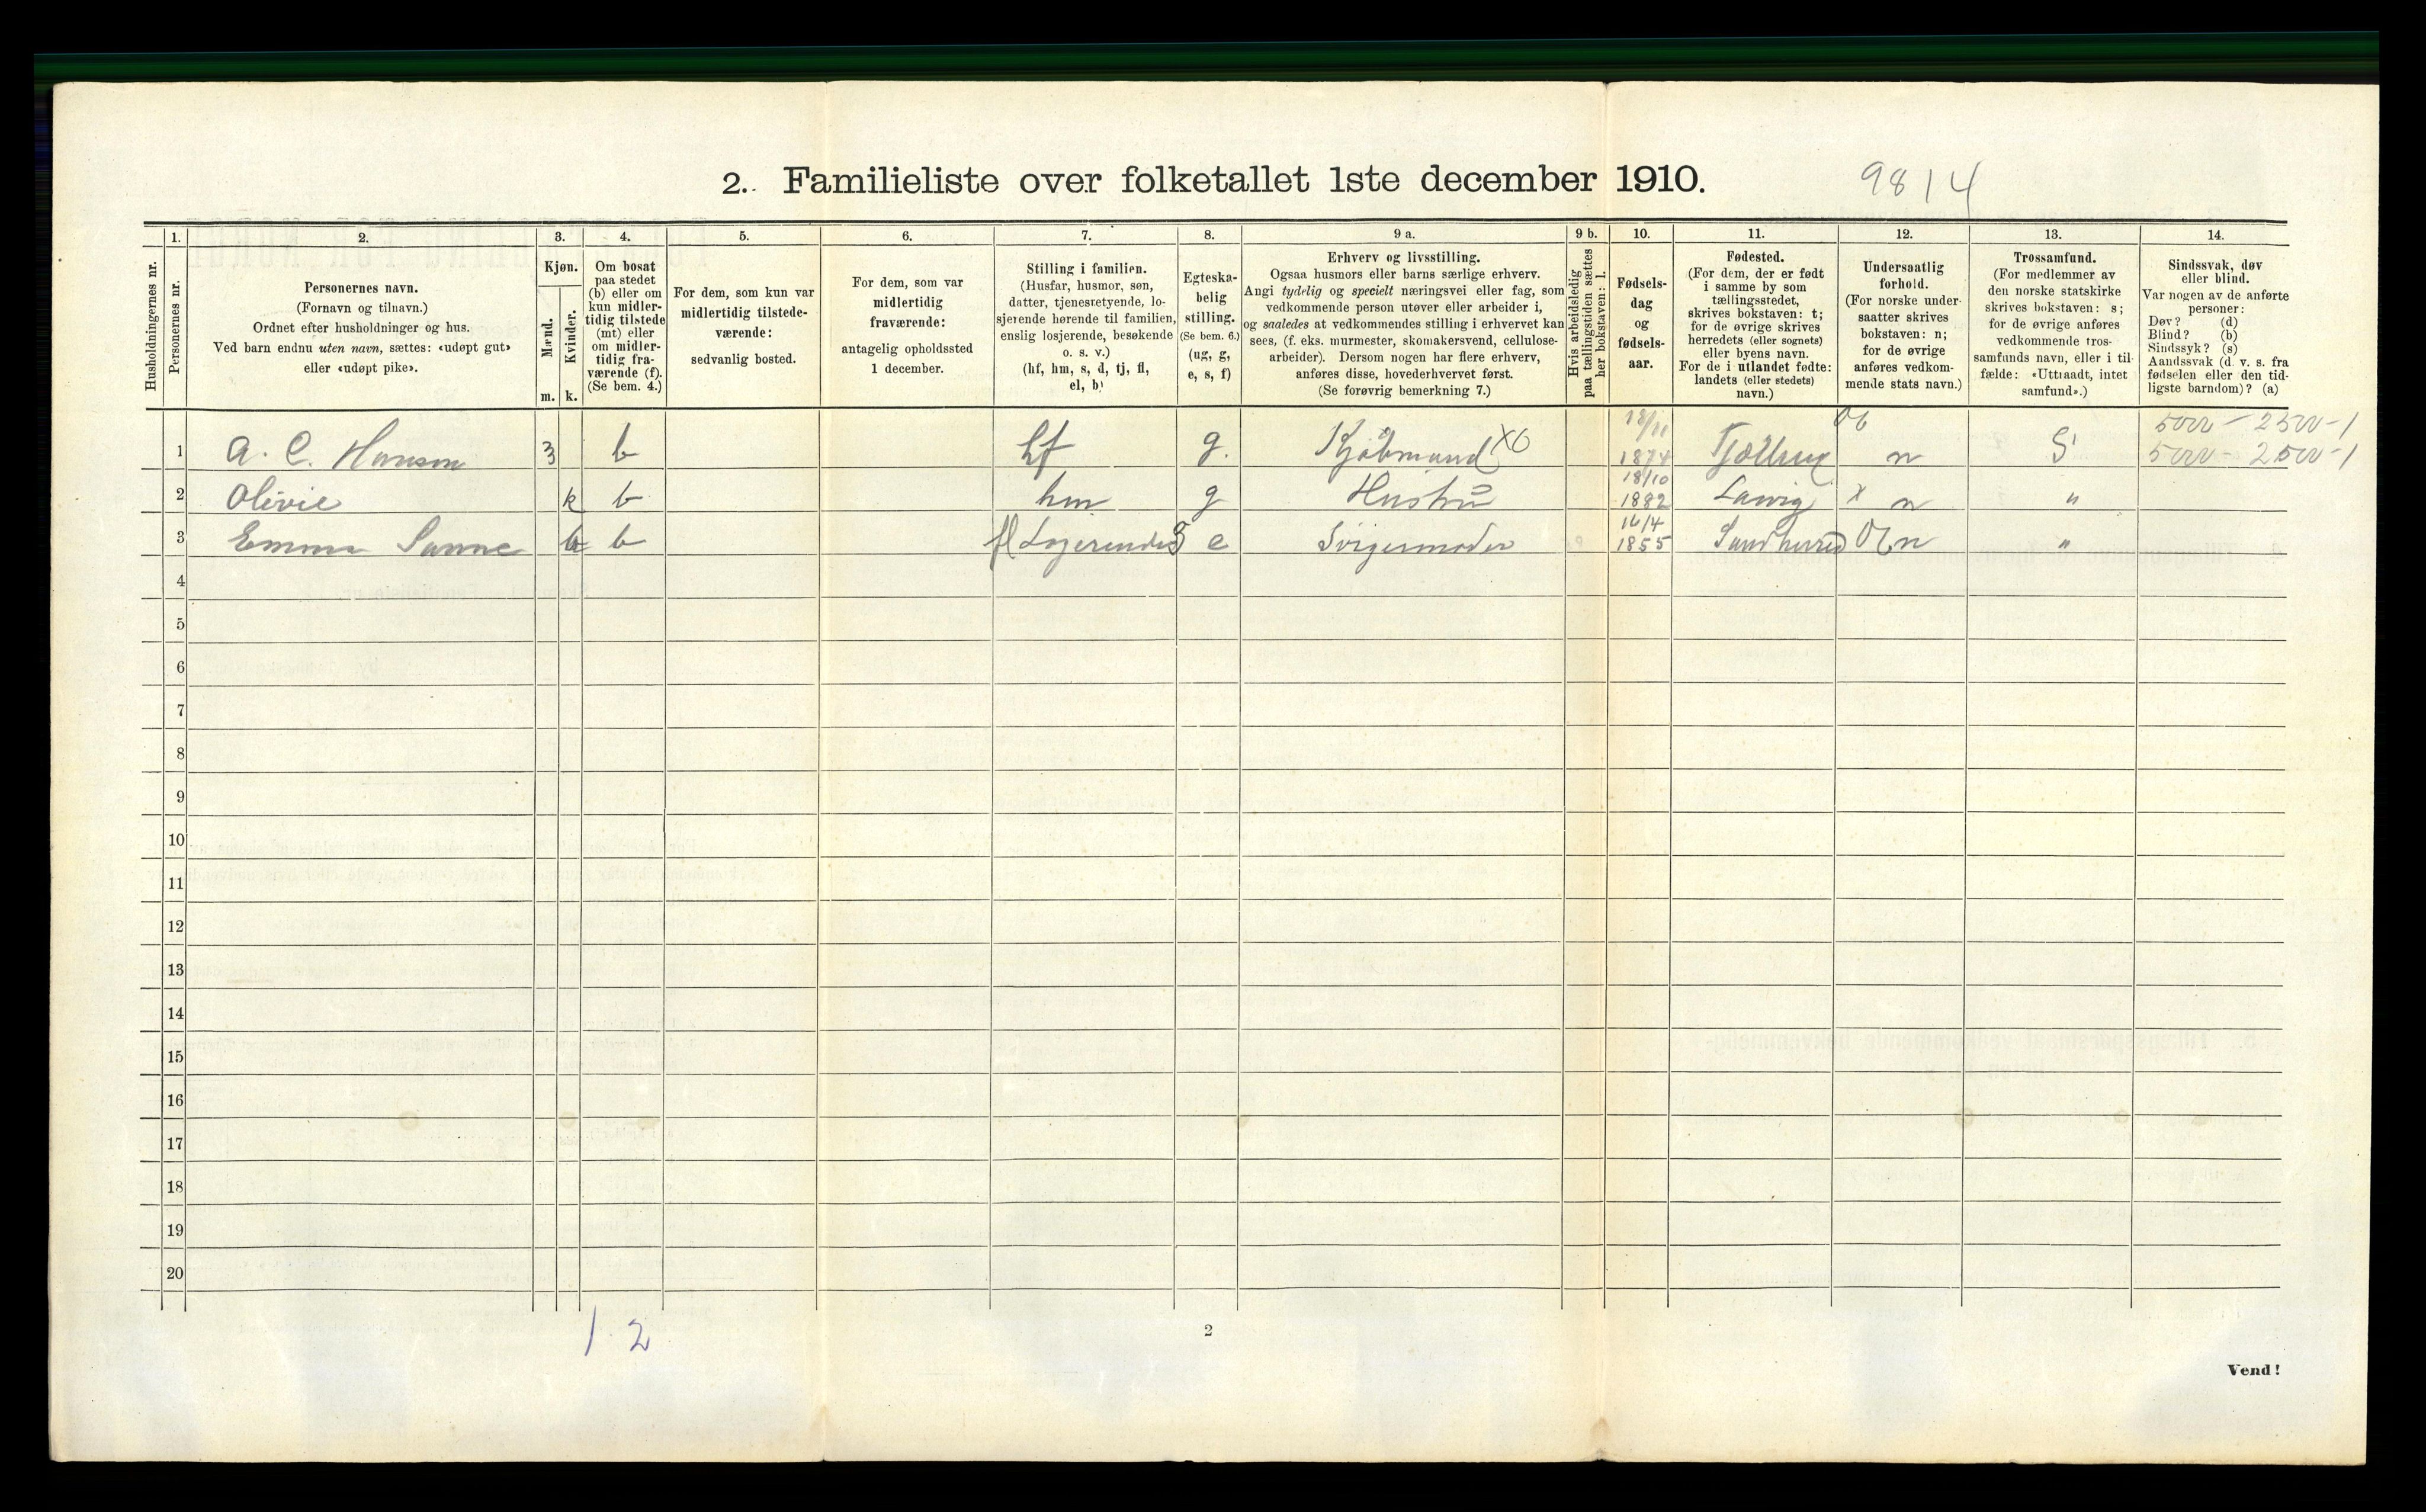 2. Familieliste over folketallet 1ste december 1910.
9814
Husholdningernes nr.
1.
Personernes nr.
2.
Personernes navn.
(Fornavn og tilnavn.)
Ordnet efter husholdninger og hus.
Ved barn endnu uten navn, sættes: «udøpt gut»
eller «udøpt pike».
3.
Kjøn.
Mænd.
m.
Kvinder.
k.
4.
Om bosat
paa stedet
(b) eller om
kun midler-
tidig tilstede
(mt) eller
om midler-
tidig fra-
værende (f).
(Se bem. 4.)
5.
For dem, som kun var
midlertidig tilstede-
værende:
sedvanlig bosted.
6.
For dem, som var
midlertidig
fraværende:
antagelig opholdssted
1 december.
7.
Stilling i familien.
(Husfar, husmor, søn,
datter, tjenestetyende, lo-
sjerende hørende til familien,
enslig losjerende, besøkende
o. s. v.)
(hf, hm, s, d, tj, fl,
el, b)
8.
Egteska-
belig
stilling.
(Se bem. 6.)
(ug, g,
e, s, f)
9 a.
Erhverv og livsstilling.
Ogsaa husmors eller barns særlige erhverv.
Angi tydelig og specielt næringsvei eller fag, som
vedkommende person utøver eller arbeider i,
og saaledes at vedkommendes stilling i erhvervet kan
sees, (f. eks. murmester, skomakersvend, cellulose-
arbeider). Dersom nogen har flere erhverv,
anføres disse, hovederhvervet først.
(Se forøvrig bemerkning 7.)
9 b.
Hvis arbeidsledig
paa tællingstiden sættes
her bokstaven: l.
10.
Fødsels-
dag
og
fødsels-
aar.
11.
Fødested.
(For dem, der er født
i samme by som
tællingsstedet,
skrives bokstaven: t;
for de øvrige skrives
herredets (eller sognets)
eller byens navn.
For de i utlandet fødte:
landets (eller stedets)
navn.)
12.
Undersaatlig
forhold.
(For norske under-
saatter skrives
bokstaven: n;
for de øvrige
anføres vedkom-
mende stats navn.)
13.
Trossamfund.
(For medlemmer av
den norske statskirke
skrives bokstaven: s;
for de øvrige anføres
vedkommende tros-
samfunds navn, eller i til-
fælde: «Uttraadt, intet
samfund».)
14.
Sindssvak, døv
eller blind.
Var nogen av de anførte
personer:
Døv? (d)
Blind? (b)
Sindssyk? (s)
Aandssvak (d. v. s. fra
fødselen eller den tid-
ligste barndom)? (a)
5000 - 2500 - 1
1 A. C. Hanson b hf g. Kjøbmand X0 1874 n S 5000 - 2500 - 1
2 Olivie k b hm g Hustru 18/10 1882 Larvig x n "
3 Emma Sanne b fl Logerende e Svigermoder 16/4 1855 Sandherred n "
4
5
6
7
8
9
10
11
12
13
14
15
16
17
18
19
20
1 2
2
Vend!